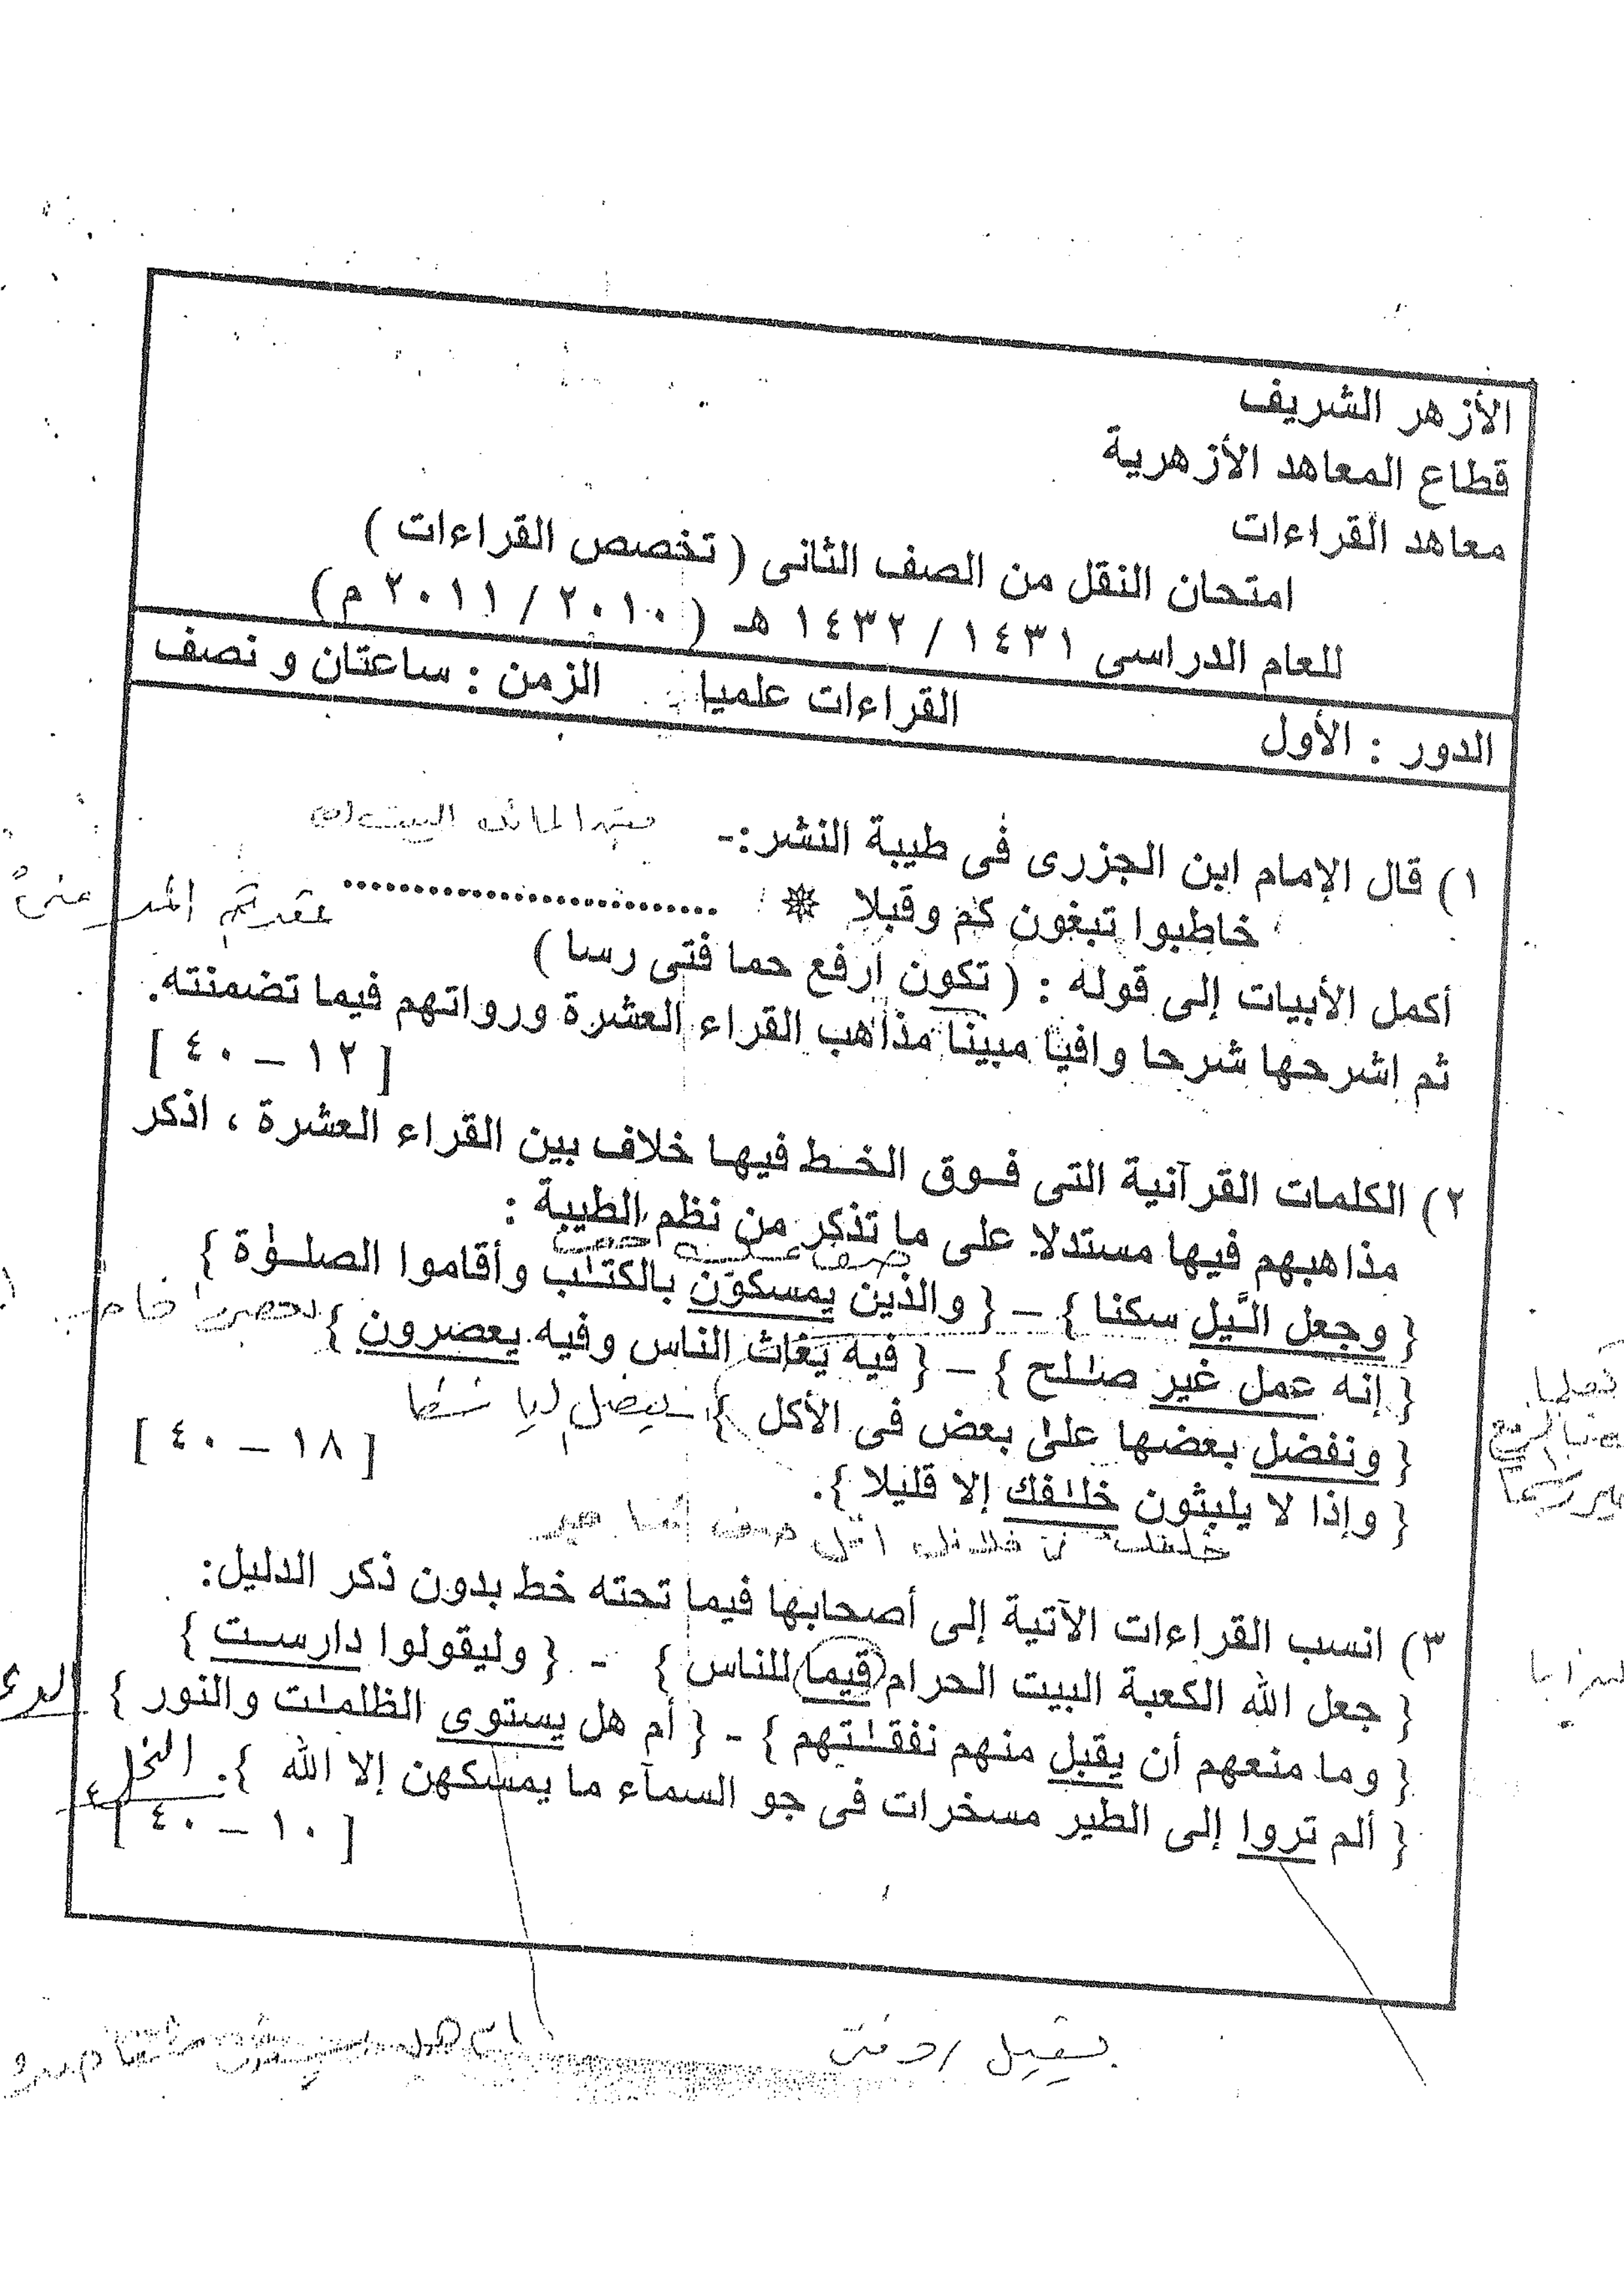 الأزهر الشريف
قطاع المعاهد الأزهرية
معاهد القراءات
امتحان النقل من الصف الثانى ( تخصص القراءات )
للعام الدراسى ١٤٣١ / ١٤٣٢ هـ ( ٢٠١٠ / ٢٠١١ م )
الدور : الأول القراءات علميا الزمن : ساعتان و نصف
١) قال الإمام ابن الجزرى فى طيبة النشر:-
خاطبوا تبغون كم وقبلا * ..............................
أكمل الأبيات إلى قوله : ( تكون ارفع حما فتى رسا )
ثم اشرحها شرحا وافيا مبينا مذاهب القراء العشرة ورواتهم فيما تضمنته.
[ ١٢ – ٤٠ ]
٢) الكلمات القرآنية التى فوق الخط فيها خلاف بين القراء العشرة ، اذكر
مذاهبهم فيها مستدلا على ما تذكر من نظم الطيبة :
{ وجعل الَّيل سكنا } – { والذين يمسكون بالكتٰب وأقاموا الصلوٰة }
{ إنه عمل غير صٰلح } – { فيه يغاث الناس وفيه يعصرون }
{ ونفضل بعضها علىٰ بعض فى الأكل }
{ وإذا لا يلبثون خلٰفك إلا قليلا }.
[ ١٨ – ٤٠ ]
٣) انسب القراءات الآتية إلى أصحابها فيما تحته خط بدون ذكر الدليل:
{ جعل الله الكعبة البيت الحرام قيما للناس } - { وليقولوا دارست }
{ وما منعهم أن يقبل منهم نفقٰتهم } - { أم هل يستوى الظلمٰت والنور }
{ ألم تروا إلى الطير مسخرات فى جو السمآء ما يمسكهن إلا الله }. النحل
[ ١٠ – ٤٠ ]